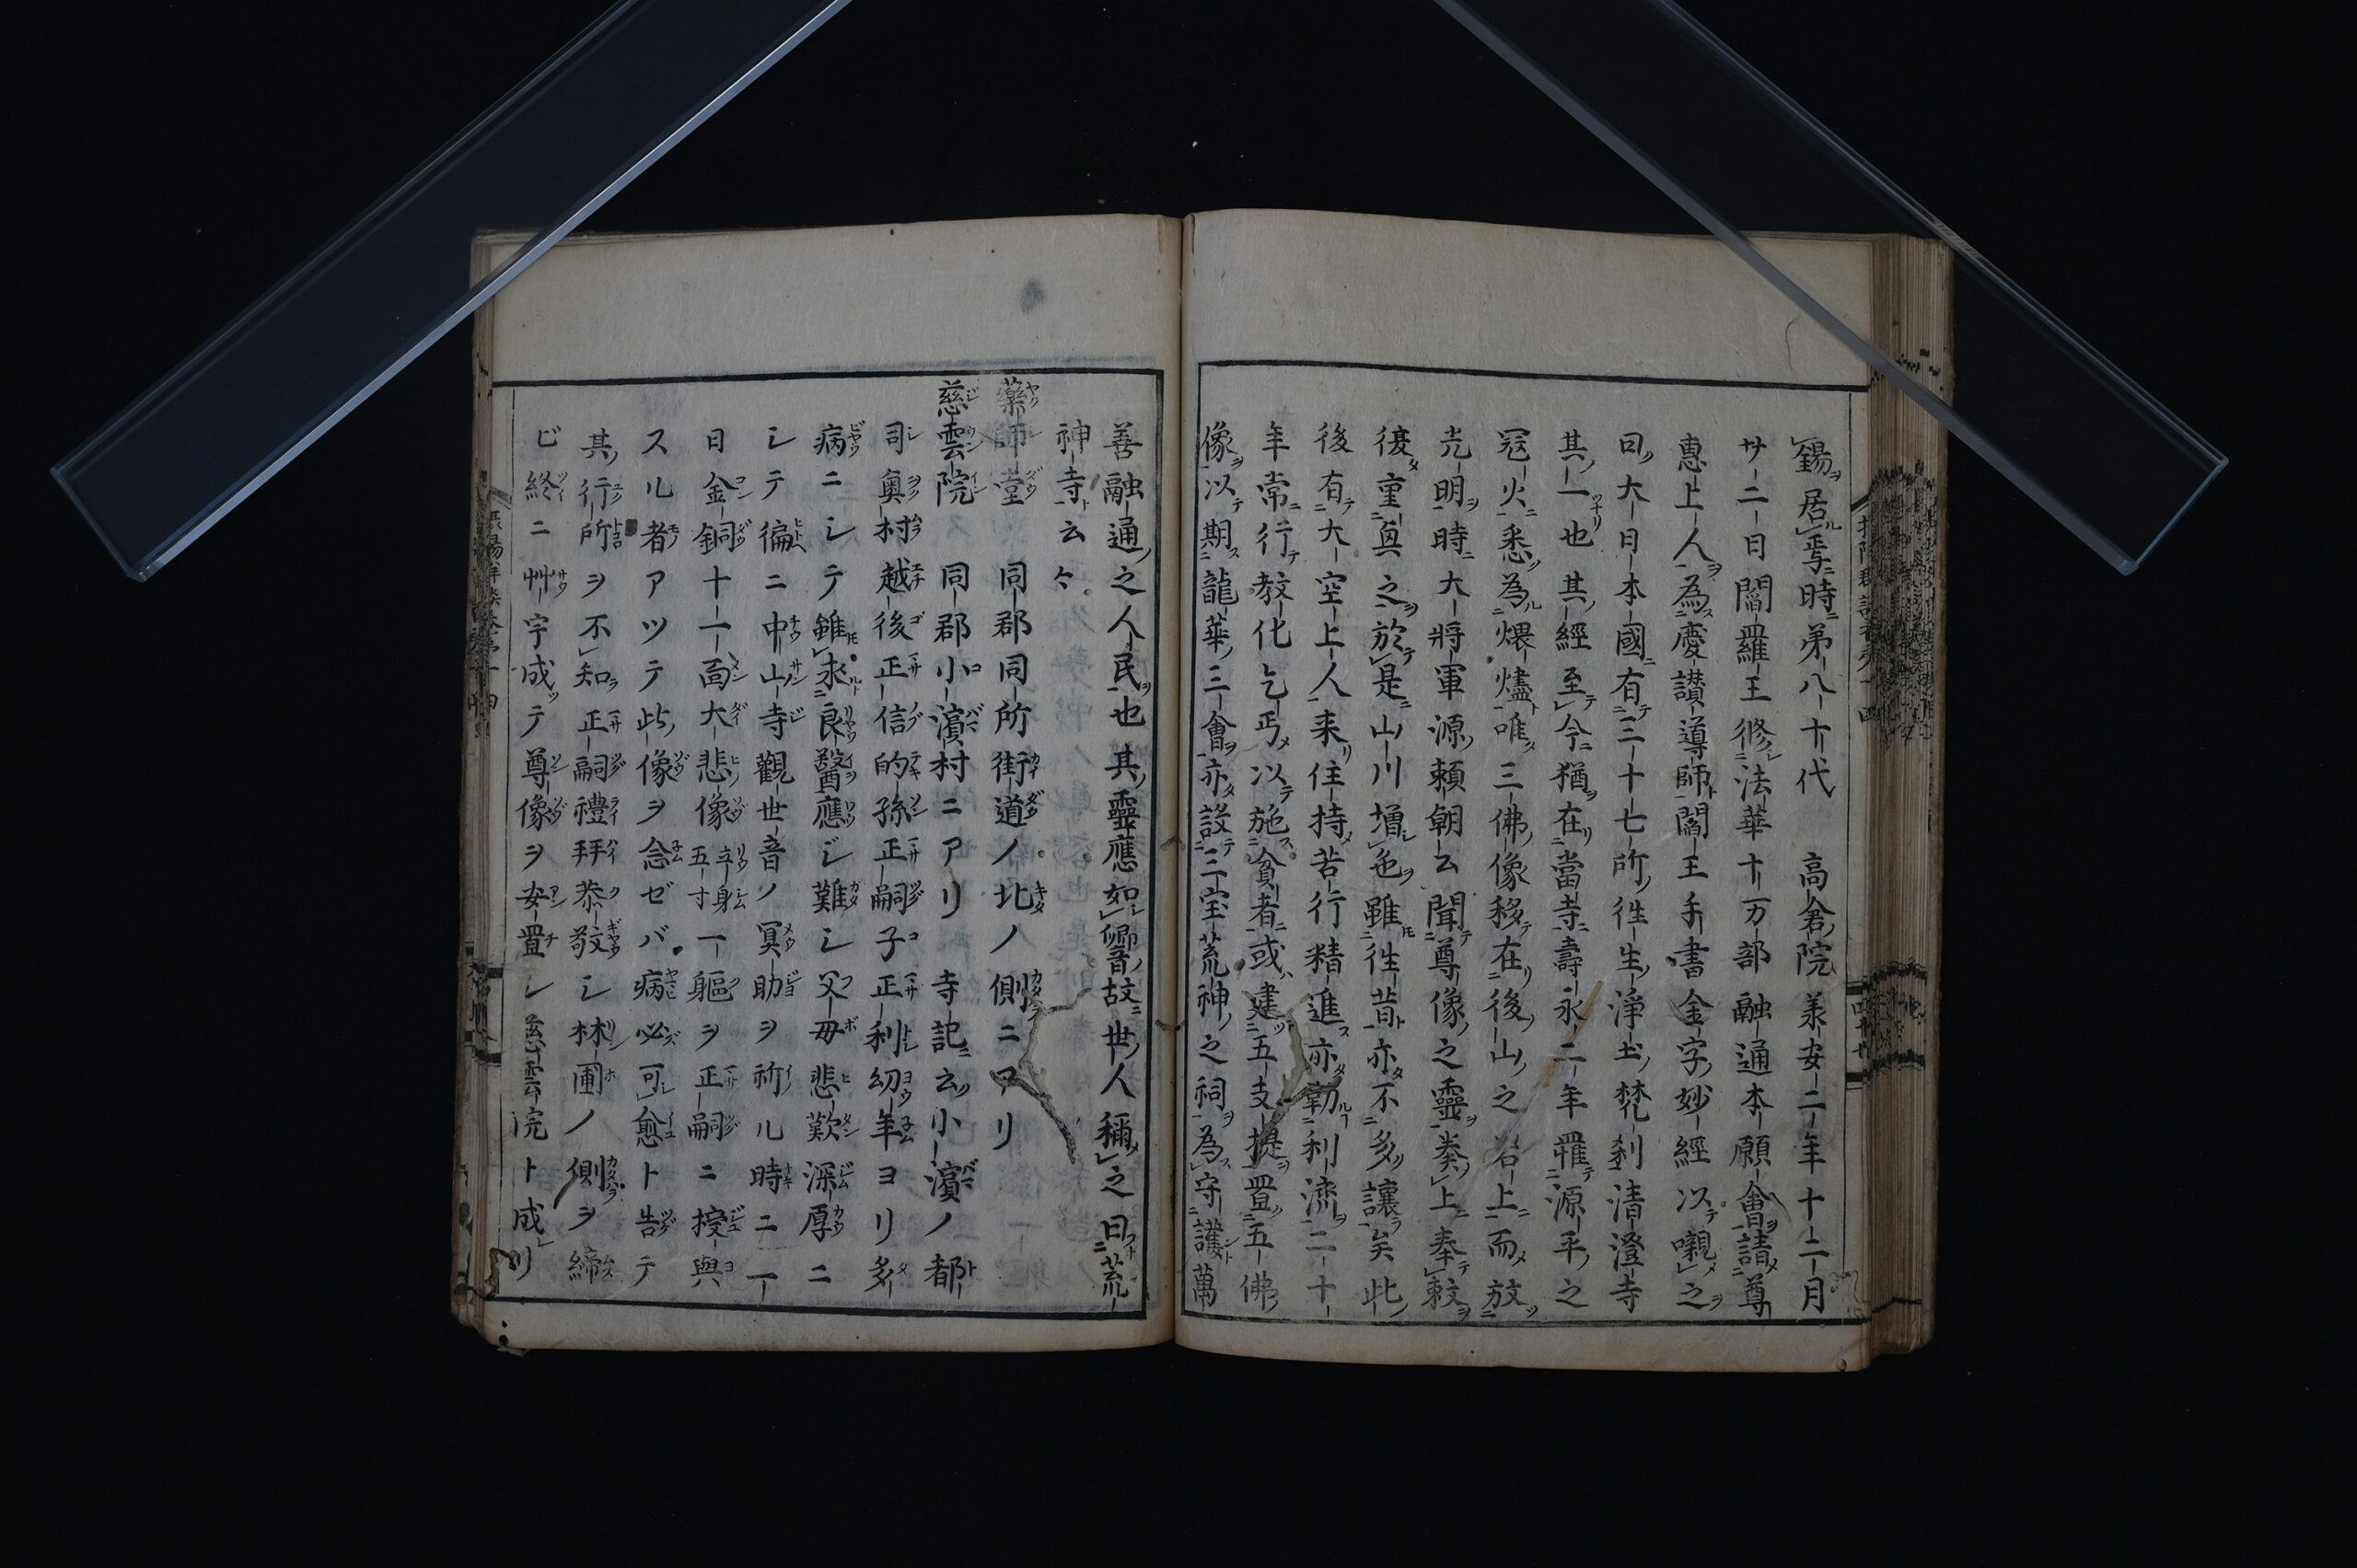 錫居焉時第八十代 高倉院義安二年十二月
廿二日閻羅王修法華十万部融通本願會請尊
惠上人為慶讃導師閻王手書金字妙經以嚫之
曰大日本國有三十七所徃生淨土梵刹清澄寺
其一也其經至今猶在當寺壽永二年罹源平之
冦火悉為煨燼唯三佛像移在後山之岩上而放
光明時大將軍源頼朝公聞尊像之靈奏上奉敕
復重奐之於是山川増色雖徃昔亦不多讓矣此
後有大空上人来住持苦行精進亦勸利濟二十
年常行教化乞丐以施貧者或建五支提置五佛
像以期龍華三會亦設三宝荒神之祠為守護萬
善融通之人民也其靈應如響故世人稱之曰荒
神寺云々
藥師堂 同郡同所街道ノ北ノ側ニアリ
慈雲院 同郡小濵村ニアリ 寺記云小濵ノ都
司奥村越後正信的孫正嗣子正利幼年ヨリ多
病ニシテ雖求良醫應シ難シ父母悲歎深厚ニ
シテ徧ニ中山寺觀世音ノ冥助ヲ祈ル時ニ一
日金銅十一面大悲像立身五寸一軀ヲ正嗣ニ授與
スル者アツテ此像ヲ念ゼバ病必可愈ト告テ
其行所ヲ不知正嗣禮拜恭敬シ林圃ノ側ヲ締
ビ終ニ艸宇成ッテ尊像ヲ安置シ慈雲院ト成リ